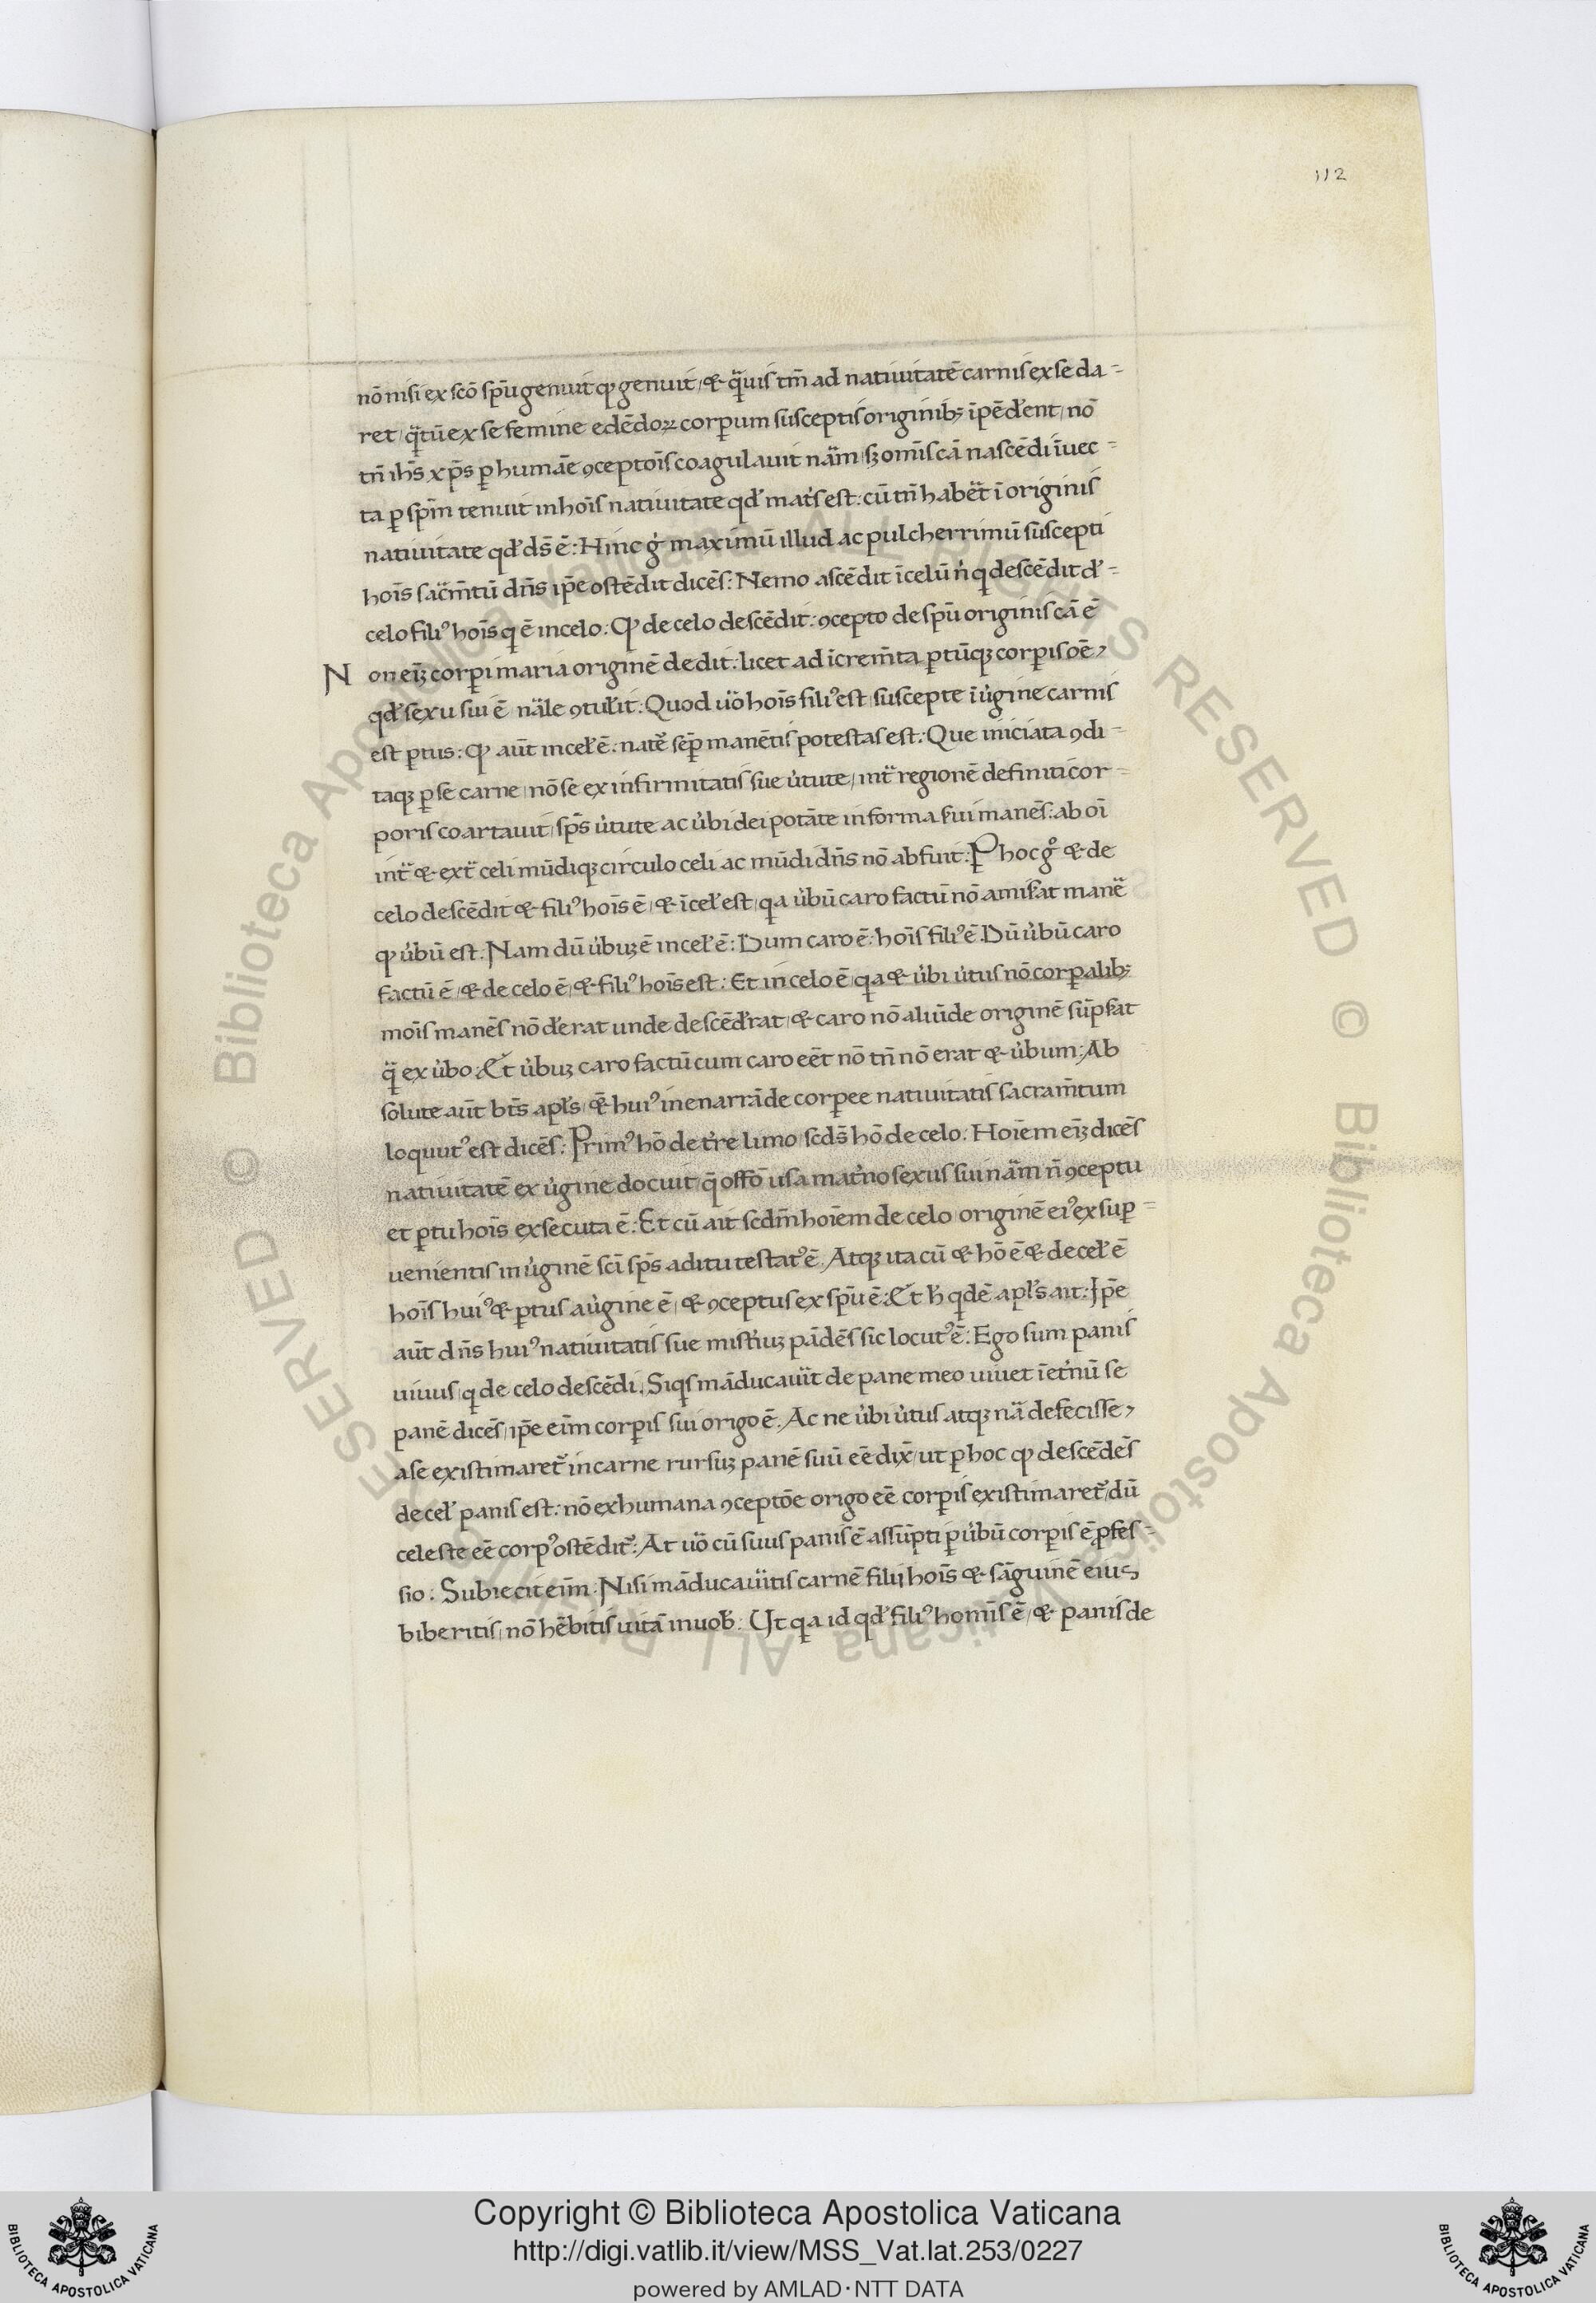 112
nō nisi ex scō spū genuit qđ genuit / & q̈uis tm̄ ad natiuitatē carnis ex se da-
ret / q̈tū ex se femine edēdoꝝ corꝑum susceptis originibꝫ īpēd'ent / nō
tn̄ ih̄s xp̄s ꝑ humāe ꝯceptōis coagulauit näm / sꝫ om̄is cā nascēdi īuec-
ta ꝑ spm̄ tenuit in hoīs natiuitate qđ mat's est : cū tn̄ habe't ī originis
natiuitate qđ ds̄ ē : Hinc g' maximū illud ac pulcherrimū suscepti
hoīs säcm̄tū dn̄s ip̄e ostēdit dicēs : Nemo ascēdit ī celū n' q descēdit d'-
celo filiꝰ hoīs q ē in celo : Qđ de celo descēdit : ꝯcepto de spū originis cā ē
Non eīꝫ corꝑi maria originē dedit : licet ad īcrem̄ta ꝑtūqꝫ corꝑis oē
qđ sexu sui ē näle ꝯtul'it : Quod üo hoīs filiꝰ est / suscepte ī u'gine carnis
est ꝑtus : Qđ aūt in cel' ē : nat' sēꝑ manētis potestas est : Que iniciata ꝯdi-
taqꝫ ꝑ se carne / nō se ex infirmitatis sue u'tute / int̄ regionē definiti cor-
poris coartauit / sps̄ u'tute ac u'bi dei potāte in forma s'ui manēs : ab oī
int̄ & ext̄ celi mūdiqꝫ circulo celi ac mūdi dn̄s nō abfuit : P hoc g° & de
celo descēdit & filiꝰ hoīs ē / & ī cel' est / qa u'bū caro factū nō amis'at manë
qđ u'bū est : Nam dū u'buꝫ ē in cel' ē : Dum caro ē : hoīs filiꝰ ē Dū u'bū caro
factū ē / & de celo ē / & filiꝰ hoīs est : Et in celo ē / qa & u'bi u'tus nō corꝑalibꝫ
moīs manēs nō d'erat unde descēd'rat / & caro nō aliūde originē sūps'at
q̈ ex u'bo : Et u'buꝫ caro factū cum caro eēt nō tn̄ nō erat & u'bum : Ab
solute aūt bt̄s apl's / & huiꝰ inenarrāde corꝑee natiuitatis sacram̄tum
loquutꝰ est dicēs : Primꝰ hō de t're limo / scds̄ hō de celo : Hoīem eīꝫ dicēs
natiuitatē ex u'gine docuit / q̄ offō usa mat'no sexus sui näm ī ꝯceptu
et ꝑtu hoīs exsecuta ē : Et cū ait scdm̄ hoīem de celo / originē eiꝰ ex suꝑ-
uenientis in u'ginē scī sps̄ aditu testatꝰ ē . Atqꝫ ita cū & hō ē & de cel' ē
hoīs huiꝰ & ꝑtus a u'gine ē / & ꝯceptus ex spū ē : Et h' qdē apl's ait : Ip̄e
aūt dn̄s huiꝰ natiuitatis sue mist'iuꝫ pādēs sic locutꝰ ē : Ego sum panis
uiuus / q de celo descēdi . Siqs māducau̇̈it de pane meo uiuet ī et'nū se
panē dicēs / ip̄e eīm corꝑis sui origo ē . Ac ne u'bi u'tus atqꝫ nä defecisse
a se existimaret' in carne rursuꝫ panē suū eē dix̄ / ut ꝑ hoc qđ descēdēs
de cel' panis est : nō ex humana ꝯceptōe origo eē corꝑis existimaret' / dū
celeste eē corpꝰ ostēdit' : At üo cū suus panis ē assūpti ꝑ u'bū corꝑis ē ꝓfes-
sio : Subiecit eīm . Nisi māducaüitis carnē filii hoīs & sāguinē eius
biberitis / nō hēbitis uitā in uob' . Ut qa id qđ filiꝰ homīs ē / & panis de
Copyright © Biblioteca Apostolica Vaticana
http://digi.vatlib.it/view/MSS_Vat.lat.253/0227
powered by AMLAD·NTT DATA